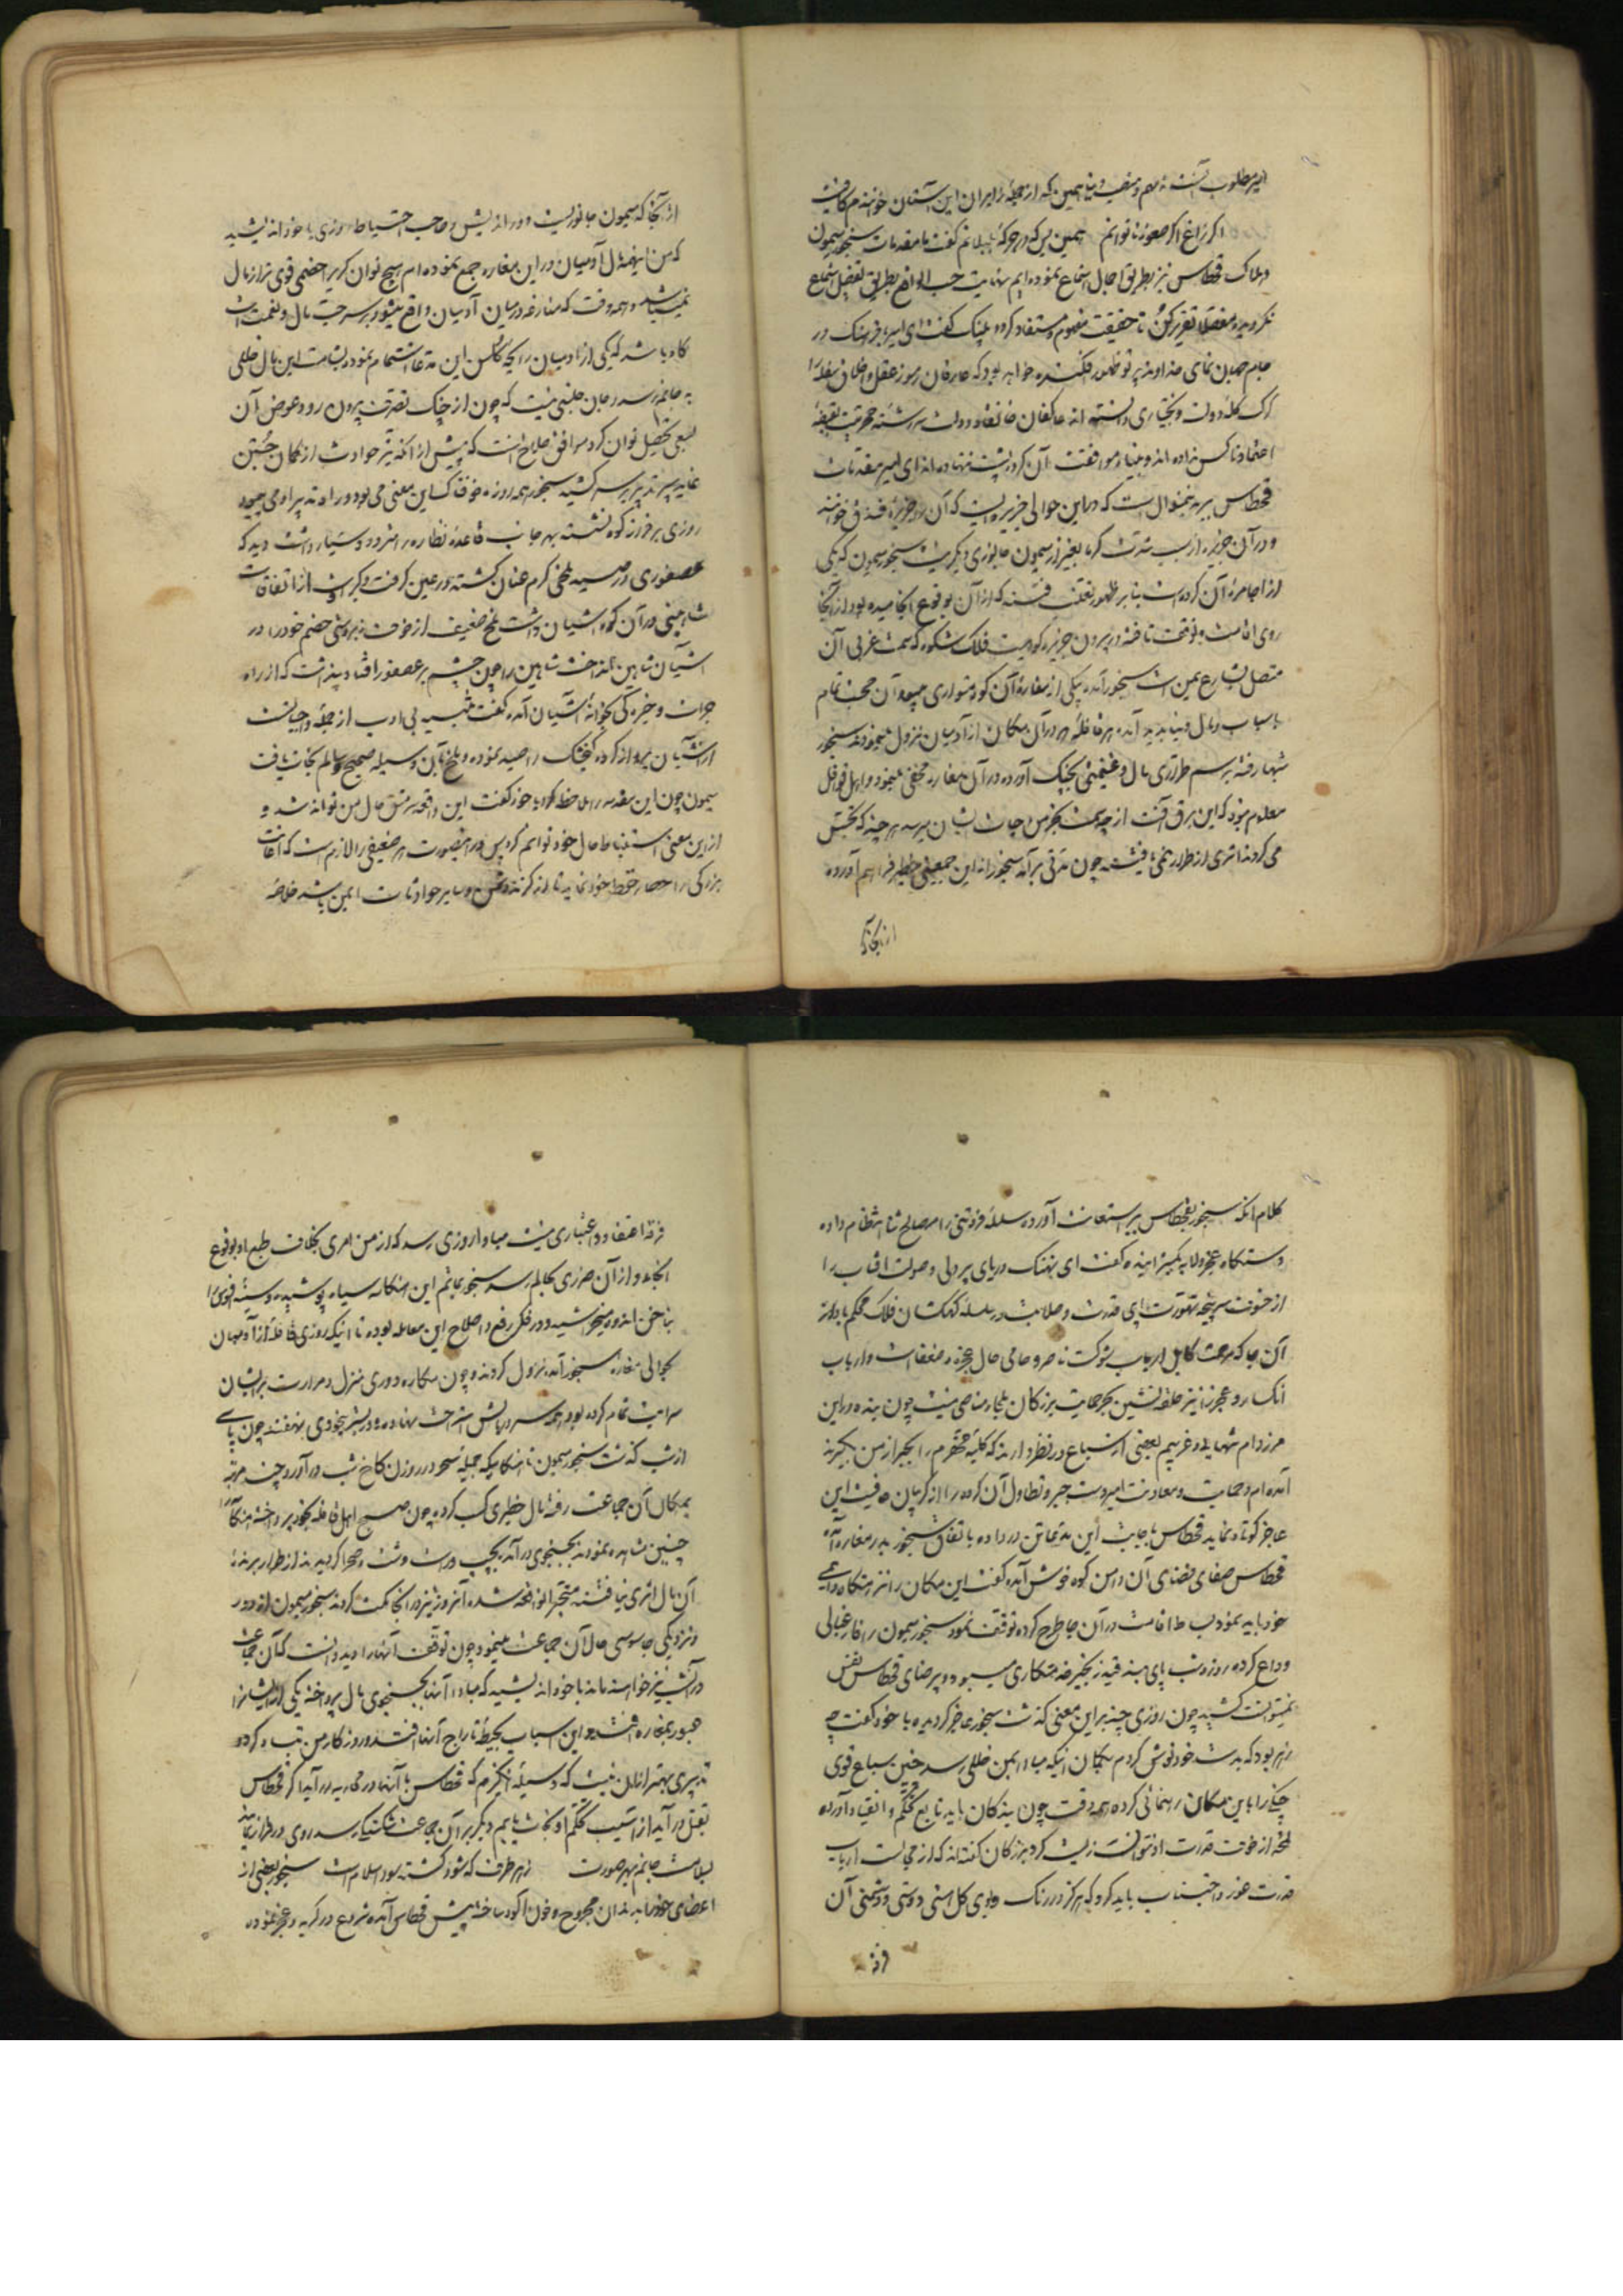 اکر زاغ اکر صعوه ناتوانم همین بس که در جرکهٔ بلبلانم گفت تا مقدمات سنجور میمون
و هلاک قحطاس نیز بطریق اجمال استماع نموده‌ایم نهایت حسب الواقع بطریق تفصیل استماع
نکردیده مفصلا تقریر کن تا حقیقت مفهوم و مستفاد کردد پلنک گفت ای امیر با فرهنک در
اعتماد ناکس نزاده‌اند و بنیاد موافقت آن کروه پشت ننهاده‌اند ای امیر مقدمات
قحطاس ببر بدینمنوال است که در این حوالی جزیره ایست که آن را جزیره فندق خوانند
و در آن جزیره از سبب شدت کرما بغیر از میمون جانوری دیگر نیست سنجور میمون که یکی
از اجامرهٔ آن کروه است بنابر ظهور فتنه که از آن بوقوع انجامیده بود از آنجا
روی اقامت و توقف تافته در بیرون جزیره کوهیست فلک شکوه که سمت غربی آن
متصل بشارع یمین است سنجور آمده بیکی از مغارهٔ آن کوه متواری
اسباب و مال دنیا پدید آمده هر قافله که در آن مکان از آدمیان نزول مینمودند سنجور
شبها رفته برسم طراری مال و غنیمتی بچنک آورده در آن مغاره مخفی مینمود و اهل قوافل
معلوم نبود که این برق آفت از چه جهت بخرمن جهات ایشان میرسد هر چند که تجسس
می کردند اثری از طرار نمی یافتند چون مدتی بر آمد سنجور را از این جمعیتی خطیر فراهم آورده
از آنجا که
از آنجا که میمون جانوریست دور اندیش و صاحب احتیاط روزی با خود اندیشید
که من اینهمه مال آدمیان در این مغاره جمع نموده‌ام هیچ توان کریز خصمی قوی تر از مال
نمیباشد و همه وقت که منازعه در میان آدمیان واقع میشود بر سر حب مال و نعمت است
کاه باشد که یکی از آدمیان رایحه کلشن این مدعا استشمام نموده بشامت این مال خللی
به جانم رسد و جان جنسی نیست که چون از چنک تصرف بیرون رود عوض آن
بسعی تحصیل توان کرد موافق صلاح آنست که پیش از آنکه تیر حوادث از کمان جستن
نماید سپر تدبیر بر سر کشید سنجور همه روزه خوفناک این معنی می بود و راه تدبیر او می جوید
روزی بر فراز کوه نشسته بهر جانب قاعدهٔ نظاره را متردد و سیار داشت دید که
عصفوری در صید ملخی کرم عنان کشته در عین کرفت و کیر است از اتفاقات
شاهینی در آن کوه آشیان داشت ملخ ضعیف از خوف نیروی خصم خود را در
آشیان شاهین انداخت شاهین را چون چشم بر عصفور افتاد پنداشت که از راه
جرات و خیرکی بخانهٔ آشیان آمده گفت
از آشیان پرواز کرده کنجشک را صید نموده و ملخ باین وسیله صحیح و سالم نجات یافت
میمون چون این مقدمه را ملاحظه کرد با خود گفت این واقعه سرمشق حال من تواند شد و
از این معنی استنباط حال خود توانم کرد پس در اینصورت هر ضعیفی را لازم است که اعانت
بزرکی را حصار حفظ خود نماید تا از کزند دشمن و سایر حوادثات ایمن باشد خلاصهٔ
کلام آنکه سنجور بقحطاس ببر استعانت آورده سلسلهٔ فروتنی را بمصالح ثنا انتظام داده
دستکاه عجز و لابه کسترانیده گفت ای نهنک دریای پر دلی و صولت آفتاب را
از خوف سرپنجه تهورت پای قدرت و صلابت در سلسله کهکشان فلک محکم باد از
آن جا که مرحمت کامل ارباب شوکت ناصر و حامی حال عجزه و ضعفا است و ارباب
انکسار و عجز را نیز حلقه نشین بجز حمایت بزرکان ملجا و مناصی نیست چون بنده در این
مرز و بوم تنها و غریبم بعضی از سباع در نظر دارند که کلبه محقرم را بجبر از من بگیرند
آمده‌ام و حمایت و معاونت امیر دست جبر و تطاول آن کروه را از کریبان عافیت این
عاجز کوتاه نماید قحطاس باجابت این مدعا تن در داده باتفاق سنجور بدر مغاره آمد
قحطاس صفای فضای آن دامن کوه خوش آمده گفت این مکان را نزهتکاه دائمی
خود باید نمود بساط اقامت در آن جا طرح کرده توقف نمود سنجور میمون را فارغبالی
وداع کرده روز و شب پای بند قید زنجیر خدمتکاری میبود و بی رضای قحطاس نفس
نمیتوانست کشید چون روزی چند بر این معنی گذشت سنجور عاجز گردیده با خود گفت چه
زهر بود که بدست خود نوش کردم بکمان اینکه مبادا بمن خللی رسد چنین سباع قوی
چنکی را باین مکان رهنمائی کرده همه وقت چون بندکان باید تابع تحکم و انقیاد او بوده
لمحهٔ از خوف قدرت او نتوان زیست کرد بزرکان گفته‌اند که از مجالست ارباب
قدرت حذر و اجتناب باید کرد که هرکز در رنک و بوی کل دوستی و دشمنی آن
فرقه
فرقه اعتقاد و اعتباری نیست مبادا روزی رسد که از من امری بخلاف طبع او بوقوع
انجامد و از آن ضرری بحالم رسد سنجور بماتم این هنکامه سیاه پوشیده و سینه افسوس را
بناخن اندوه میخراشید و در فکر رفع و اصلاح این معامله بود تا اینکه روزی قافلهٔ از آدمیان
بحوالی مغاره سنجور آمده نزول کردند و چون مکاره دوری منزل و مرارت بر ایشان
سرایت تمام کرده بود همه سر در بالش استراحت نهاده و در بستر بیخودی نهفتند چون پاسی
از شب گذشت سنجور میمون
بمکان آن جماعت رفته مال خطیری کسب کرده چون صبح اهل قافله بخود پرداخته هنکامه را
چنین مشاهده نمودند بجستجوی در آمده بچپ و راست دشت و صحرا گردیدند از طرار برنده
آن مال اثری نیافتند متحیر الواقعه شده آنروز نیز در آنجا مکث کردند سنجور میمون از دور
و نزدیکی جاسوسی حال آن جماعت مینمود چون توقف آنها را دید دانست که آن جماعت
در آنشب نیز خواهند ماند با خود اندیشید که مبادا آنها بجستجوی مال پرداخته یکی از ایشان را
عبور بمغاره افتد و این اسباب بحیطهٔ تاراج آنها افتد و روزکار من تباه کردد
تدبیری بهتر از این نیست که وسیلهٔ انگیزم که قحطاس با آنها در محاربه در آید اکر قحطاس
بقتل در آید از آسیب تحکم او نجات یابم و دیگر بر آن جماعت شکستی رسد روی در فرار نهند
بسلامت جانم بهر صورت زهر طرف که شود کشته سود اسلام است سنجور بعضی از
اعضای خود را بدندان مجروح و خون آلود ساخته پیش قحطاس آمده شروع در کریه و عجز نموده